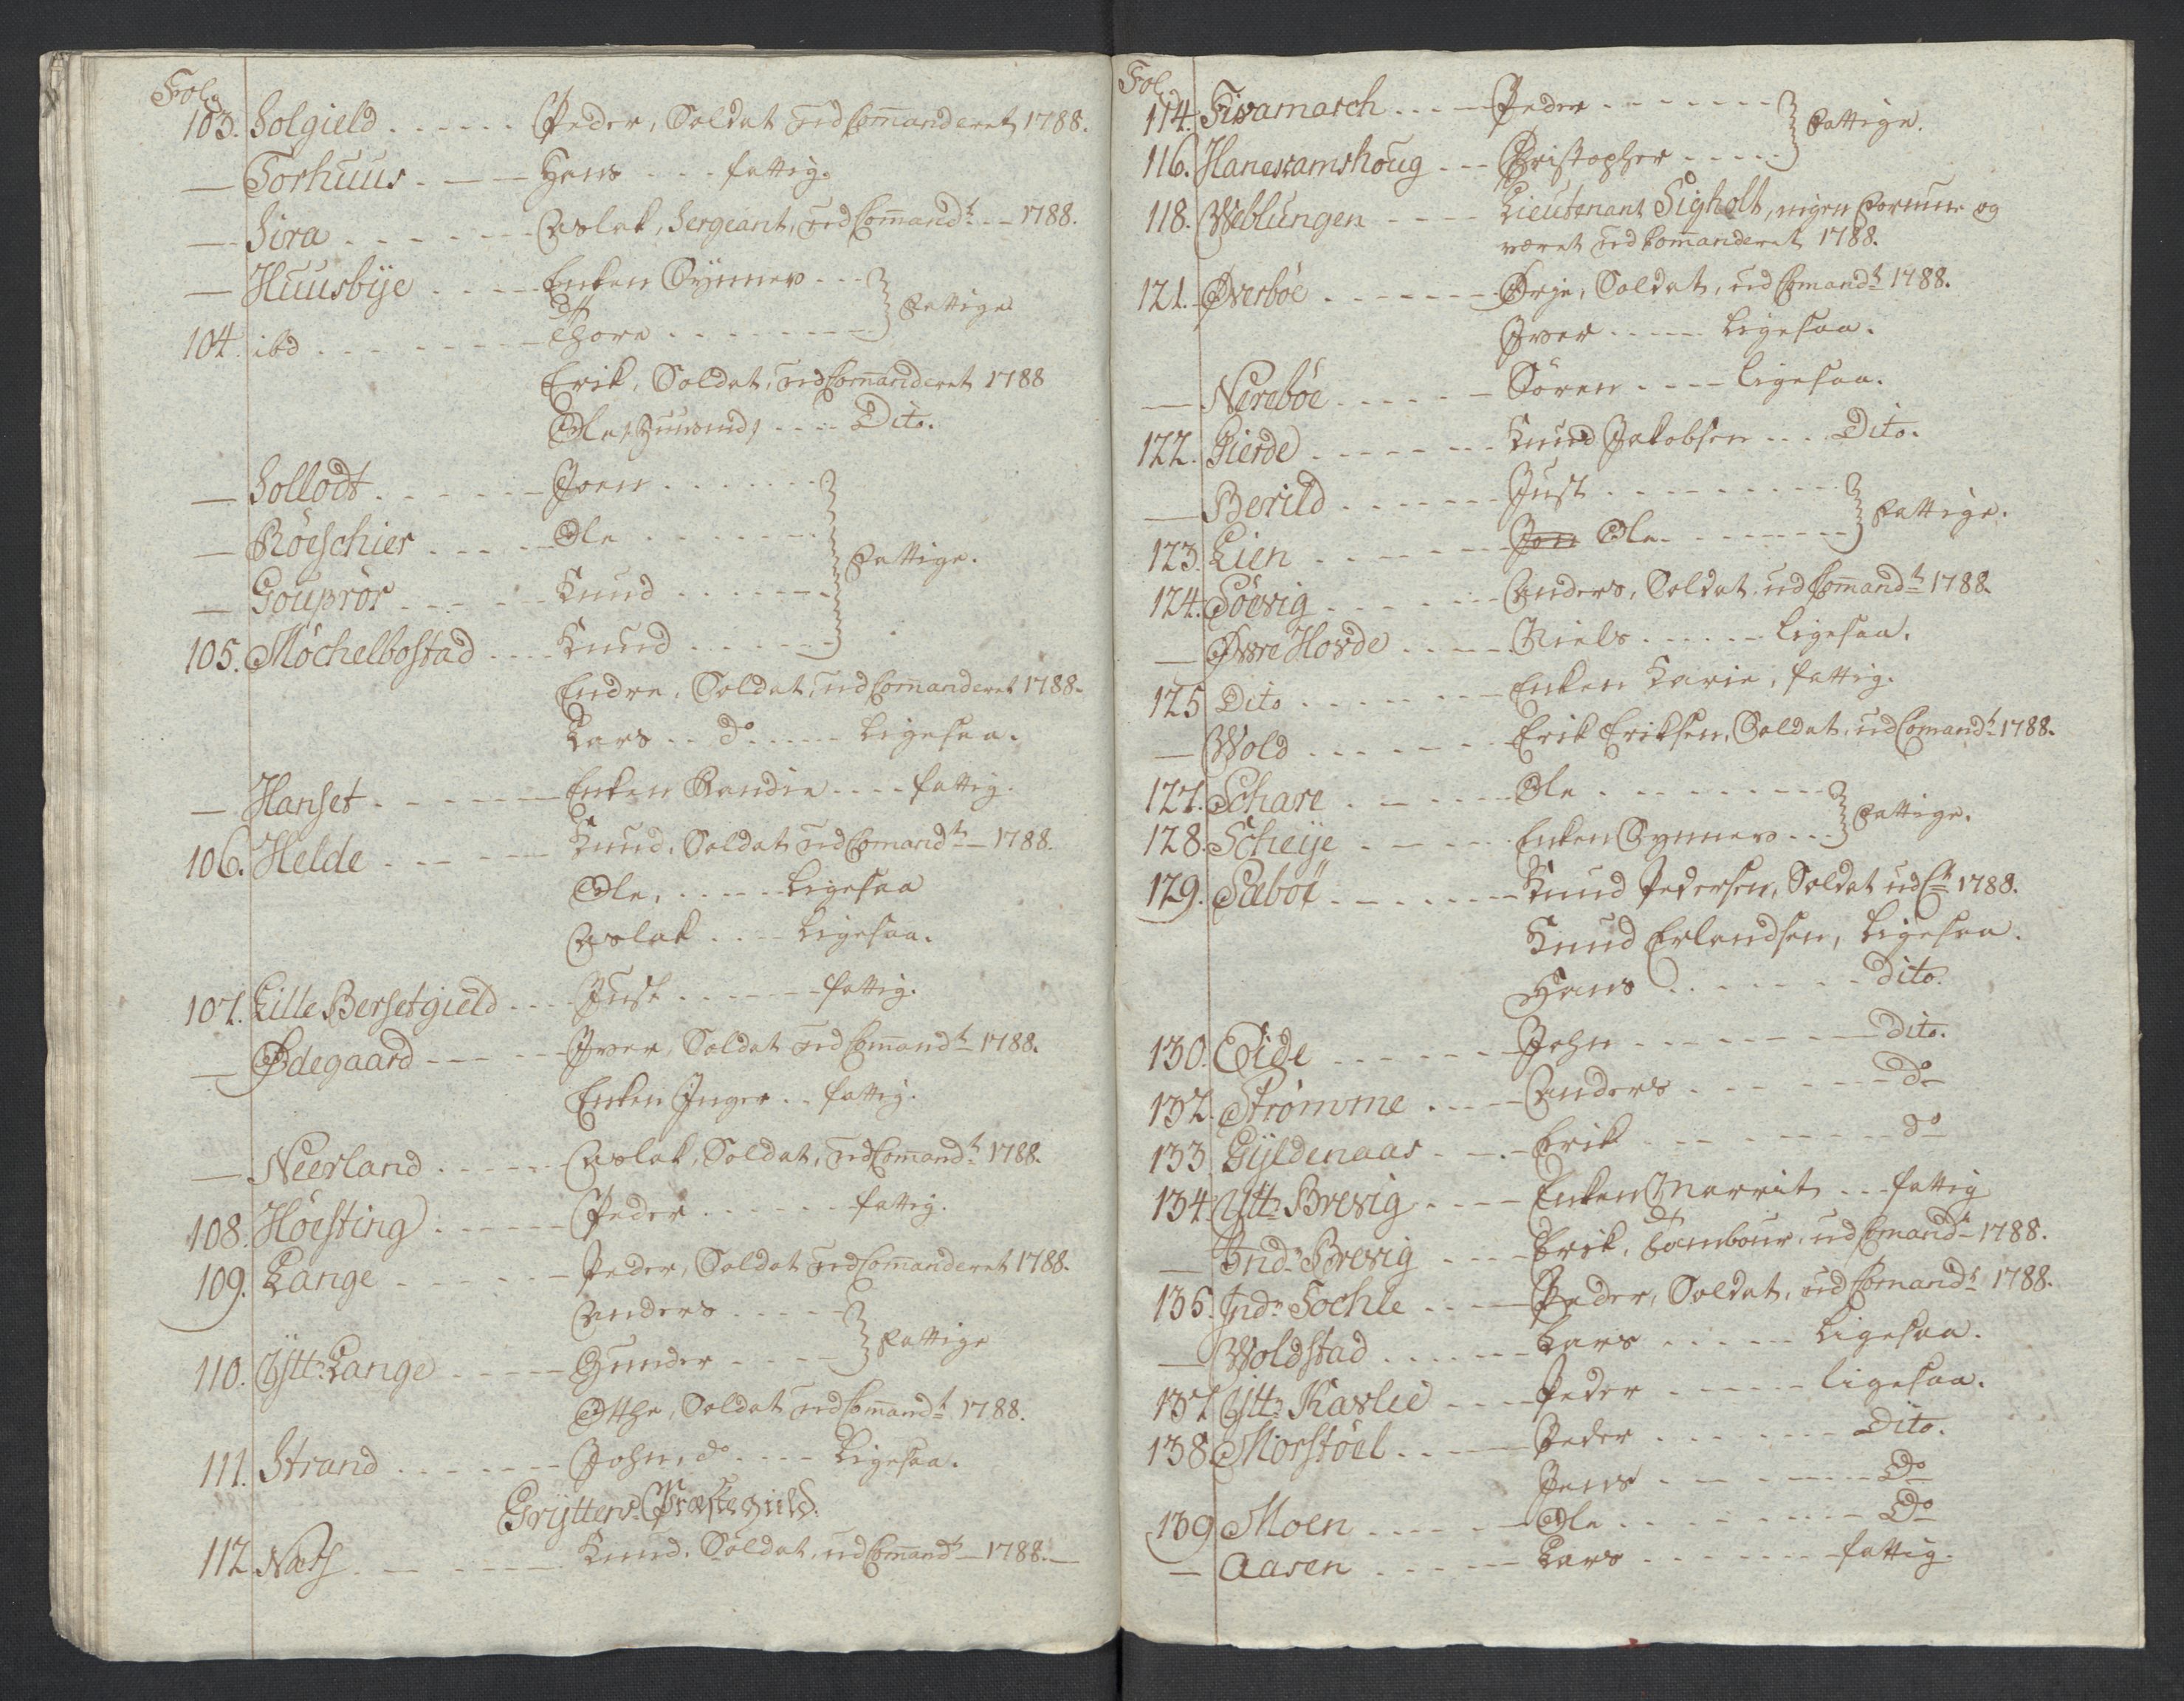 Fol.
103. Solgield . . . . . . Peder, Soldat udCommanderet 1788.
— Torhuus . . — Hans . . . fattig.
— Sira . . . . . . Aslak, Sergeant, udCommandt — 1788.
— Huusbÿe . . . . Enken Synnev . . .
104. ibd . . . . . . Thore . . . . . . . Fattige
Erik, Soldat, udCommanderet 1788
Ole, . . . . Dito.
— Sollodt . . . . . . Joen . . . . . . .
— Röeschier . . . . . Ole . . . . . . .
— Gouprör . . . . . Knud . . . . . . . Fattige.
105. Möchelbostad . . . Knud . . . . . .
Endre, Soldat, udCommanderet 1788.
Lars . . do . . . . Ligesaa.
— Hanset . . . . . . Enken Randie . . . . fattig.
106. Helde . . . . . . Knud, Soldat udComandt — 1788.
Ole, . . . . . Ligesaa
Aslak . . . . Ligesaa.
107. Lille Bersetgield . . . Just . . . . . . fattig.
— Ødegaard — — . . Iver, Soldat udCommandt 1788.
Enken Inger . . fattig.
— Neerland . . . . . Aslak, Soldat, udComandt 1788.
108. Höesting . . . . . Peder . . . . . . fattig.
109. Lange . . . . . . Peder, Soldat udCommanderet 1788.
Anders . . . . .
110. Ÿttr Lange . . . . Gunder . . . . . Fattige
Otthe, Soldat udCommandt 1788.
111. Strand . . . . . . . John, do . . . . Ligesaa.
Grÿttens Præstegield.
112 Næss . . . . . . . Knud, Soldat, udCommandt — 1788. —
Fol.
114. Tivamarch . . . — Peder . . . . . . .
116. Haneramshoug . . . Christopher . . . . . Fattige.
118. Weblungen . . . . Lieutenant Sigholt, ingen Formue og
været udCommanderet 1788.
121. Øverböe . . . . . . Ørje, Soldat, udComandt 1788.
Iver . . . . . Ligesaa.
— Nereböe . . . . . . Sören . . . . . ligesaa.
122. Gierde . . . . . . . Knud Jakobsen . . . Dito.
— Berild . . . . . . . Just . . . . . . . . .
123. Lien . . . . . . . Jon Ole . . . . . . . . Fattige.
124. Söevig . . . . . . Anders, Soldat udCommandt 1788.
— Øvre Hovde . . . . Niels . . . . . . ligesaa.
125 Dito . . . . . . . Enken Karie, fattig.
— Wold . . . . . . . Erik Eriksen, Soldat, udComandt 1788.
127. Schare . . . . . . Ole . . . . . . . . .
128. Scheÿe . . . . . Enken Synnev . . . Fattige.
129. Sæböe . . . . . . . Knud Pedersen, Soldat udCt 1788.
Knud Erlandsen, Ligesaa.
Hans . . . . . . . dito.
130. Eide . . . . . . . John . . . . . . . . dito.
132. Strömme . . . . Anders . . . . . . . do
133. Gÿldenaas . . . . Erik . . . . . . . . do
134. Ÿttr Brevig . . . . Enken Marrit . . . fattig
— Indr Brevig . . . . Erik, Tambour, udComandt 1788.
135. Indr Tochle . . . . Peder, Soldat, udComandt 1788.
— Woldstad . . . . . . Lars . . . . . . Ligesaa.
137 Ÿttr Kavlie . . . . Peder . . . . . . ligesaa.
138. Morstöel . . . . . Peder . . . . . . Dito.
Jens . . . . . . . . Do
139 Moen . . . . . . Ole . . . . . . . . Do
— Aasen . . . . . . Lars . . . . . . . fattig.